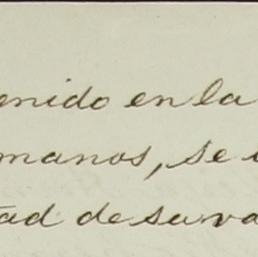 enido en la
manos, se
tad de su va